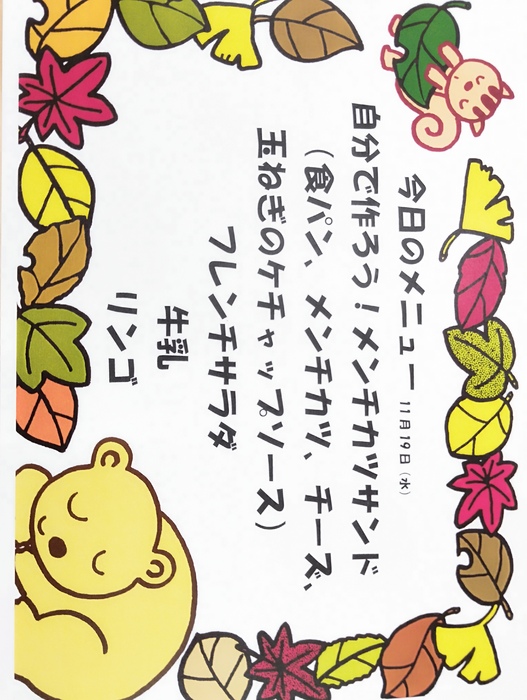 今日のメニュー 11月19日（水）
自分で作ろう！メンチカツサンド
（食パン、メンチカツ、チーズ、
玉ねぎのケチャップソース）
フレンチサラダ
牛乳
リンゴ